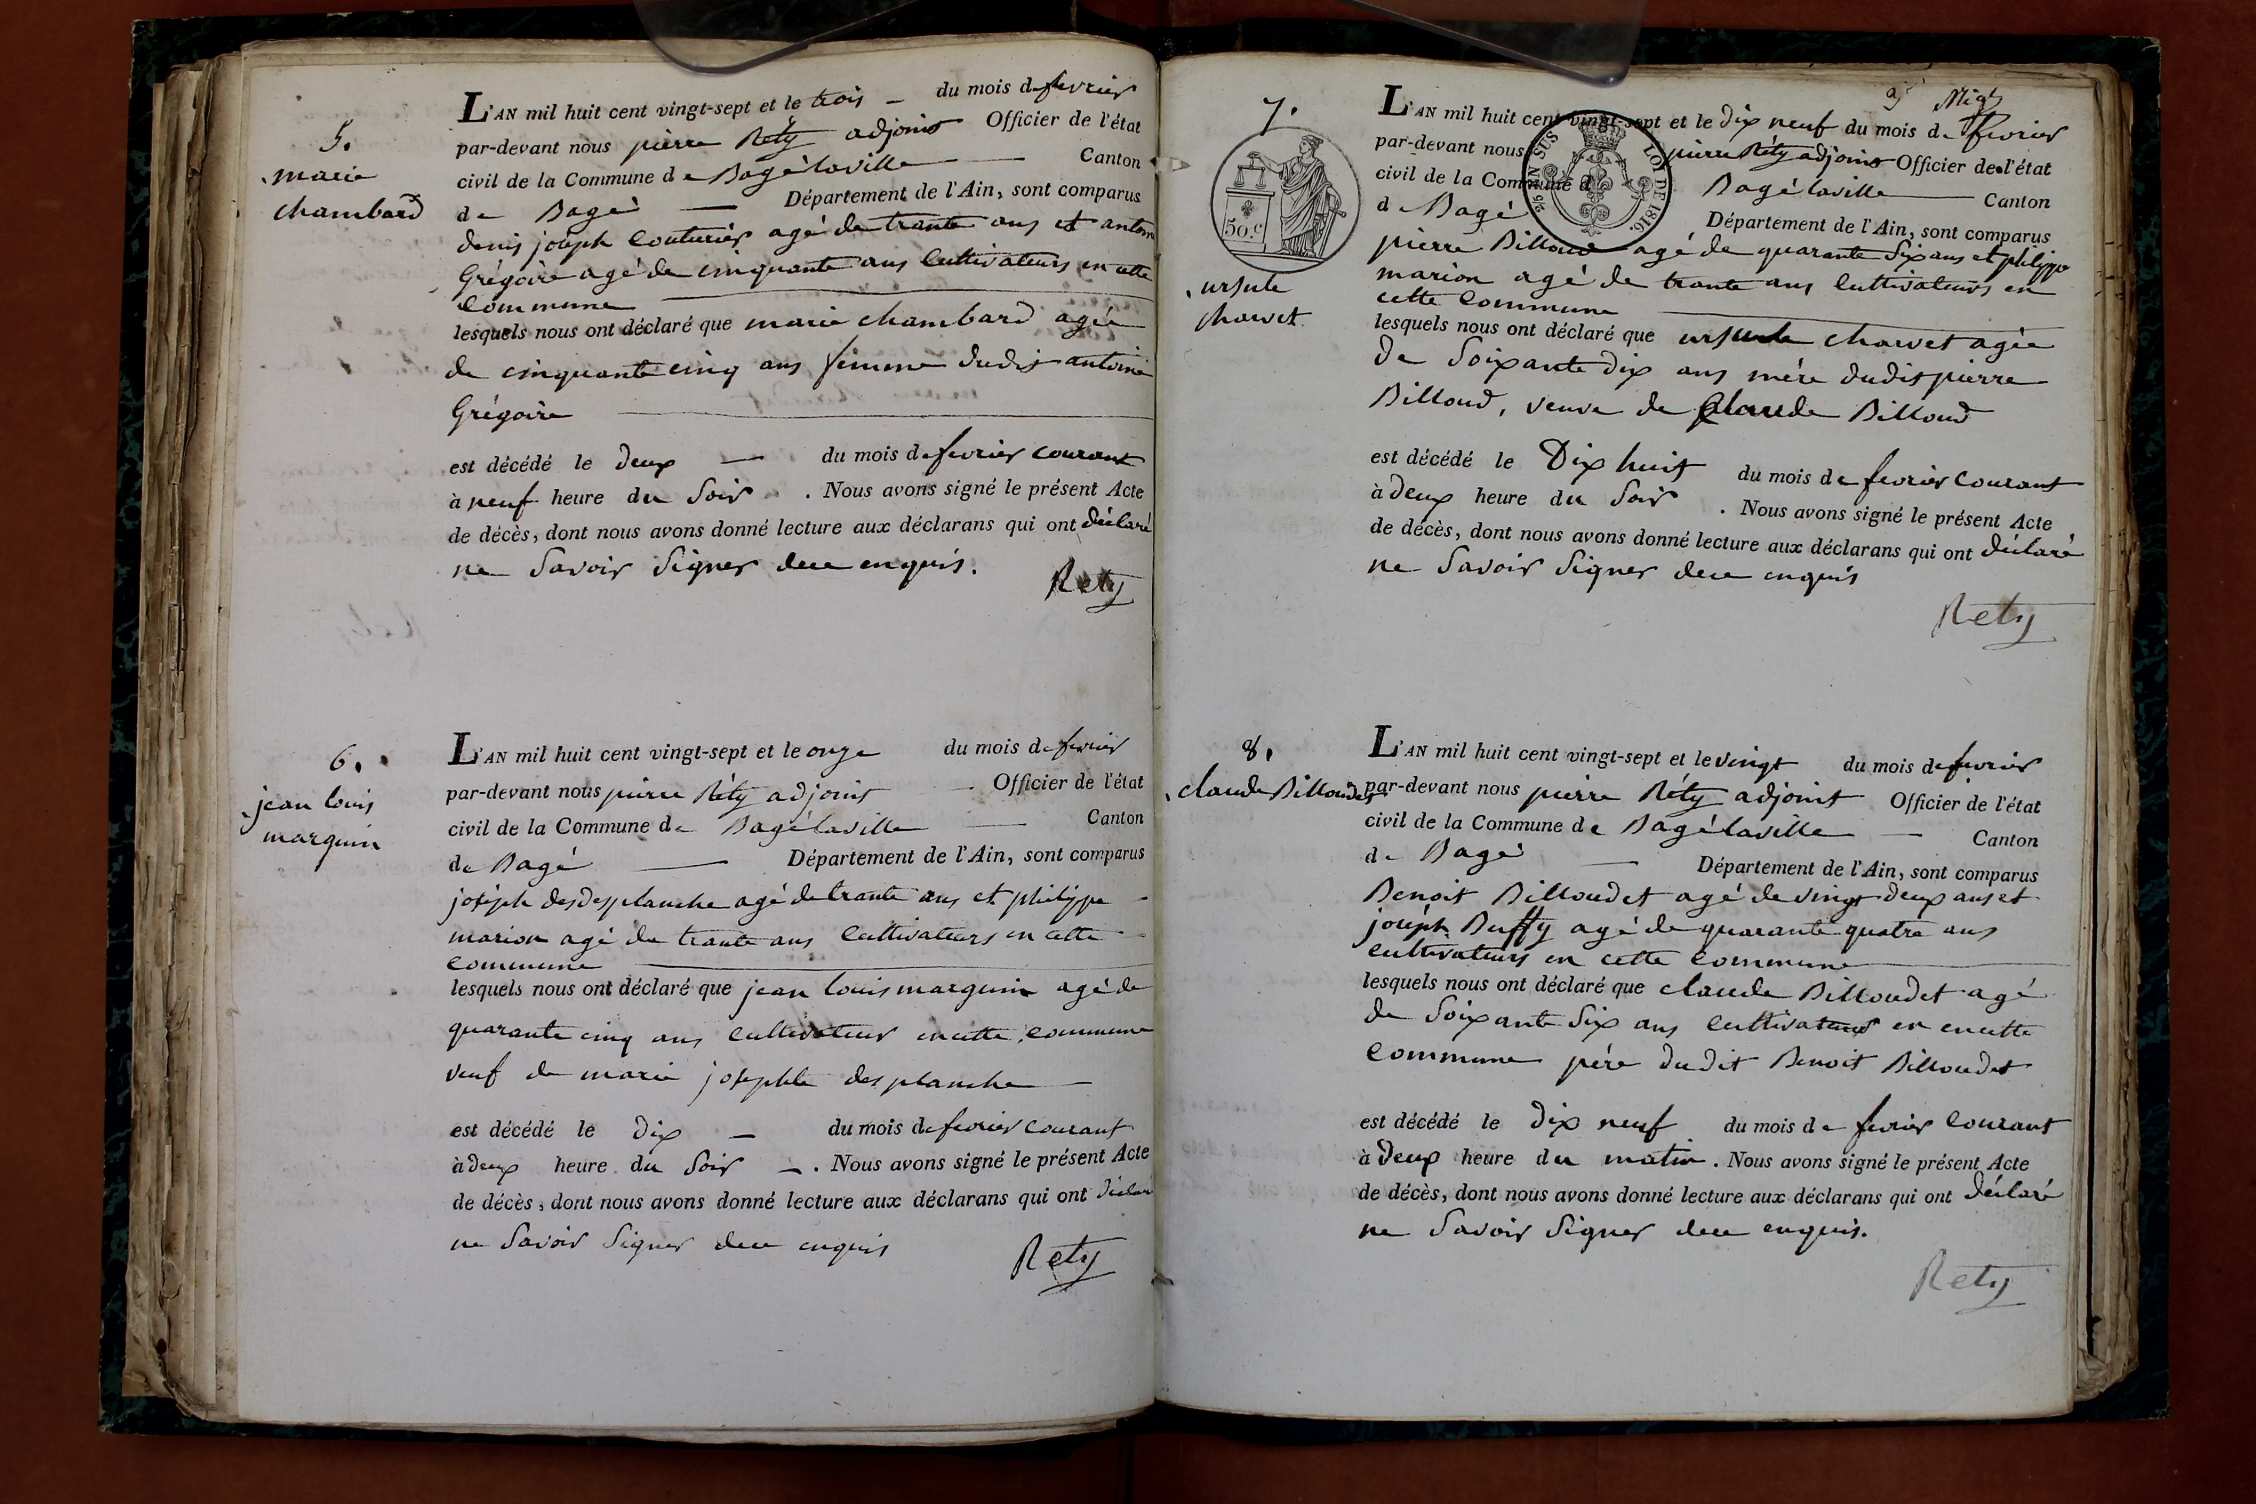 5.
marie
chambard
L'AN mil huit cent vingt-sept et le trois — du mois de fevrier
par-devant nous pierre Réty adjoint Officier de l'état
civil de la Commune de Bagélaville — Canton
de Bagé — Département de l'Ain, sont comparus
denis joseph Couturier agé de trante ans et antoin
Grégoire agé de cinquante ans Cultivateurs en cette
Commune
lesquels nous ont déclaré que marie chambard agée
de cinquante cinq ans femme dudit antoine
Grégoire
est décédé le deux — du mois de fevrier courant
à neuf heure du Soir . Nous avons signé le présent Acte
de décès, dont nous avons donné lecture aux déclarans qui ont déclaré
ne Savoir Signer de ce enquis.
Rety
6.
jean louis
marguin
L'AN mil huit cent vingt-sept et le onze du mois de fevrier
par-devant nous pierre Réty adjoint Officier de l'état
civil de la Commune de Bagélaville — Canton
de Bagé — Département de l'Ain, sont comparus
joséph desdesplanche agé de trante ans et philippe
marion agé de trante ans Cultivateurs en cette
Commune
lesquels nous ont déclaré que jean louis marguin agé de
quarante cinq ans Cultivateur en cette Commune
veuf de marie josephte desplanche
est décédé le dix — du mois de fevrier courant
à deux heure du Soir — . Nous avons signé le présent Acte
de décès, dont nous avons donné lecture aux déclarans qui ont déclaré
ne Savoir Signer de ce enquis
Rety
7.
50.c
ursule
charvet
L'AN mil huit cent vingt-sept et le dix neuf du mois de fevrier
par-devant nous pierre Réty adjoint Officier de l'état
civil de la Commune d Bagélaville — Canton
de Bagé Département de l'Ain, sont comparus
LOI DE 1816.
pierre Billoud agé de quarante Six ans et philippe
marion agé de trante ans Cultivateurs en
cette Commune
lesquels nous ont déclaré que ursule charvet agée
de Soixante dix ans mére dudit pierre
Billoud, veuve de Claude Billoud
est décédé le Dix huit du mois de fevrier courant
à deux heure du Soir . Nous avons signé le présent Acte
de décès, dont nous avons donné lecture aux déclarans qui ont déclaré
ne Savoir Signer de ce enquis
Rety
8.
claude Billoudet
L'AN mil huit cent vingt-sept et le vingt du mois de fevrier
par-devant nous pierre Réty adjoint Officier de l'état
civil de la Commune de Bagélaville — Canton
de Bagé — Département de l'Ain, sont comparus
Benoit Billoudet agé de vingt deux ans et
joséph Buffy agé de quarante quatre ans
Cultivateurs en cette Commune
lesquels nous ont déclaré que claude Billoudet agé
de Soixante Six ans Cultivateur en en cette
Commune pére dudit Benoit Billoudet
est décédé le dix neuf du mois de fevrier courant
à deux heure du matin . Nous avons signé le présent Acte
de décès, dont nous avons donné lecture aux déclarans qui ont déclaré
ne Savoir Signer de ce enquis.
Rety